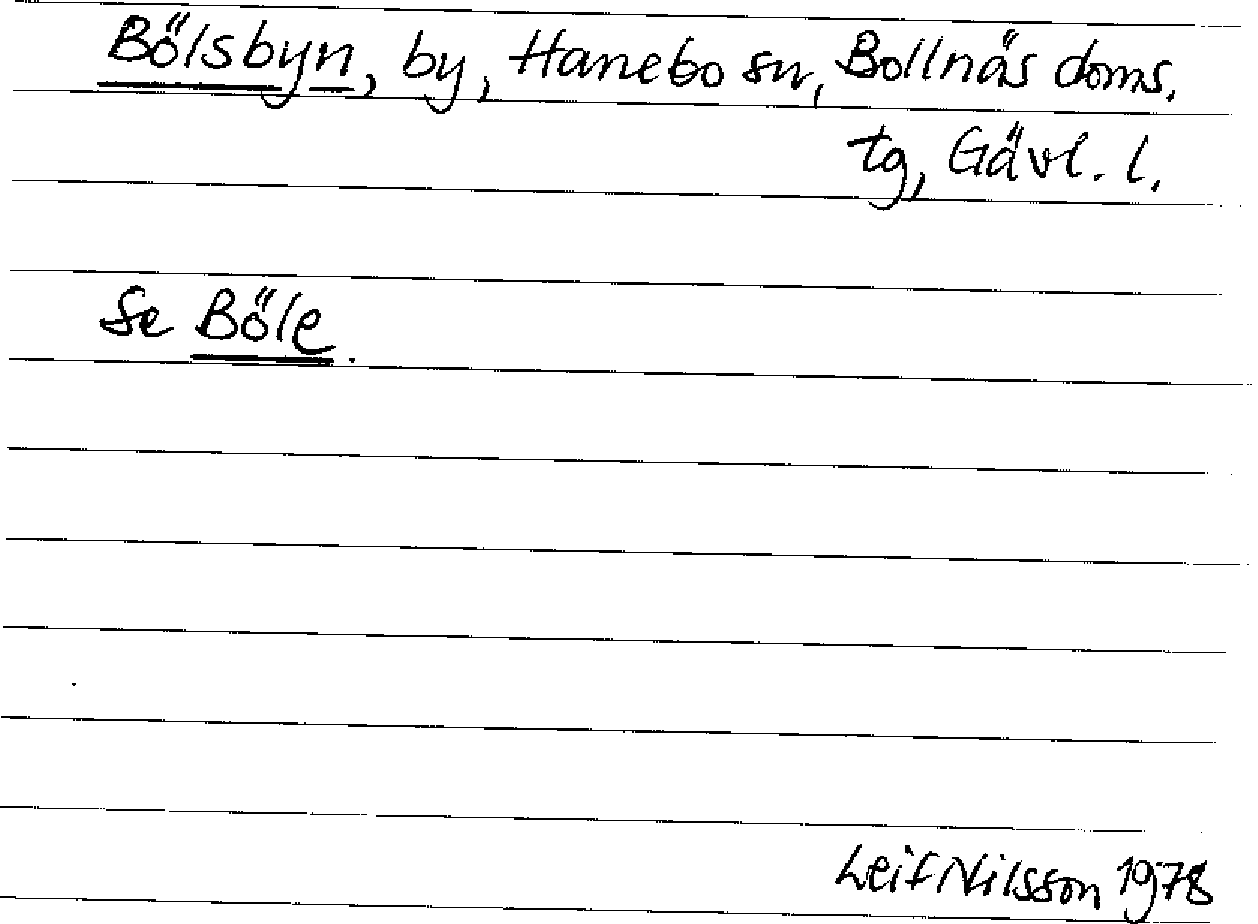 Bölsbyn, by, Hanebo sn, Bollnäs doms.
tg, Gävl. l.
Se Böle.
Leif Nilsson 1978